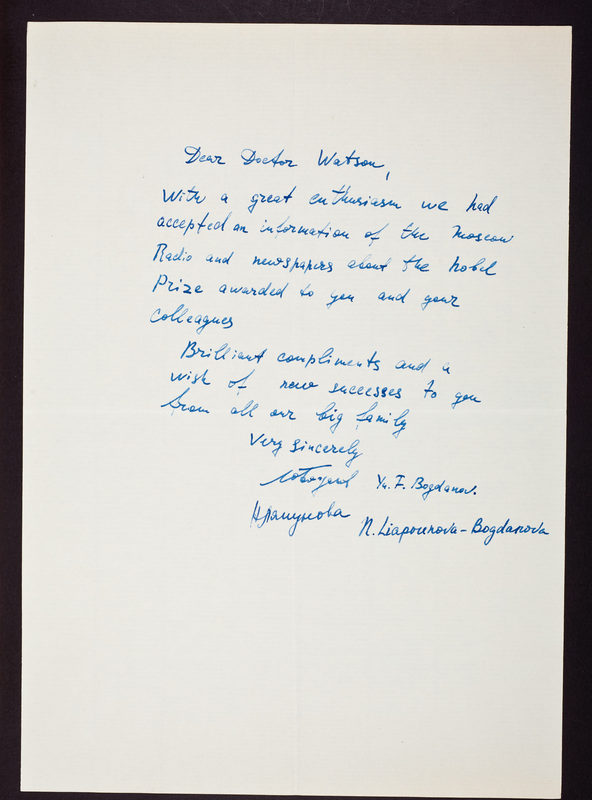 Dear Doctor Watson,
With a great enthusiasm we had
accepted an information of the Moscow
Radio and newspapers about the Nobel
Prize awarded to you and your
colleagues
Brilliant compliments and a
wish of new successes to you
from all our big family
Very sincerely
Yu. F. Bogdanov.
НЛяпунова
N. Liapounova-Bogdanova